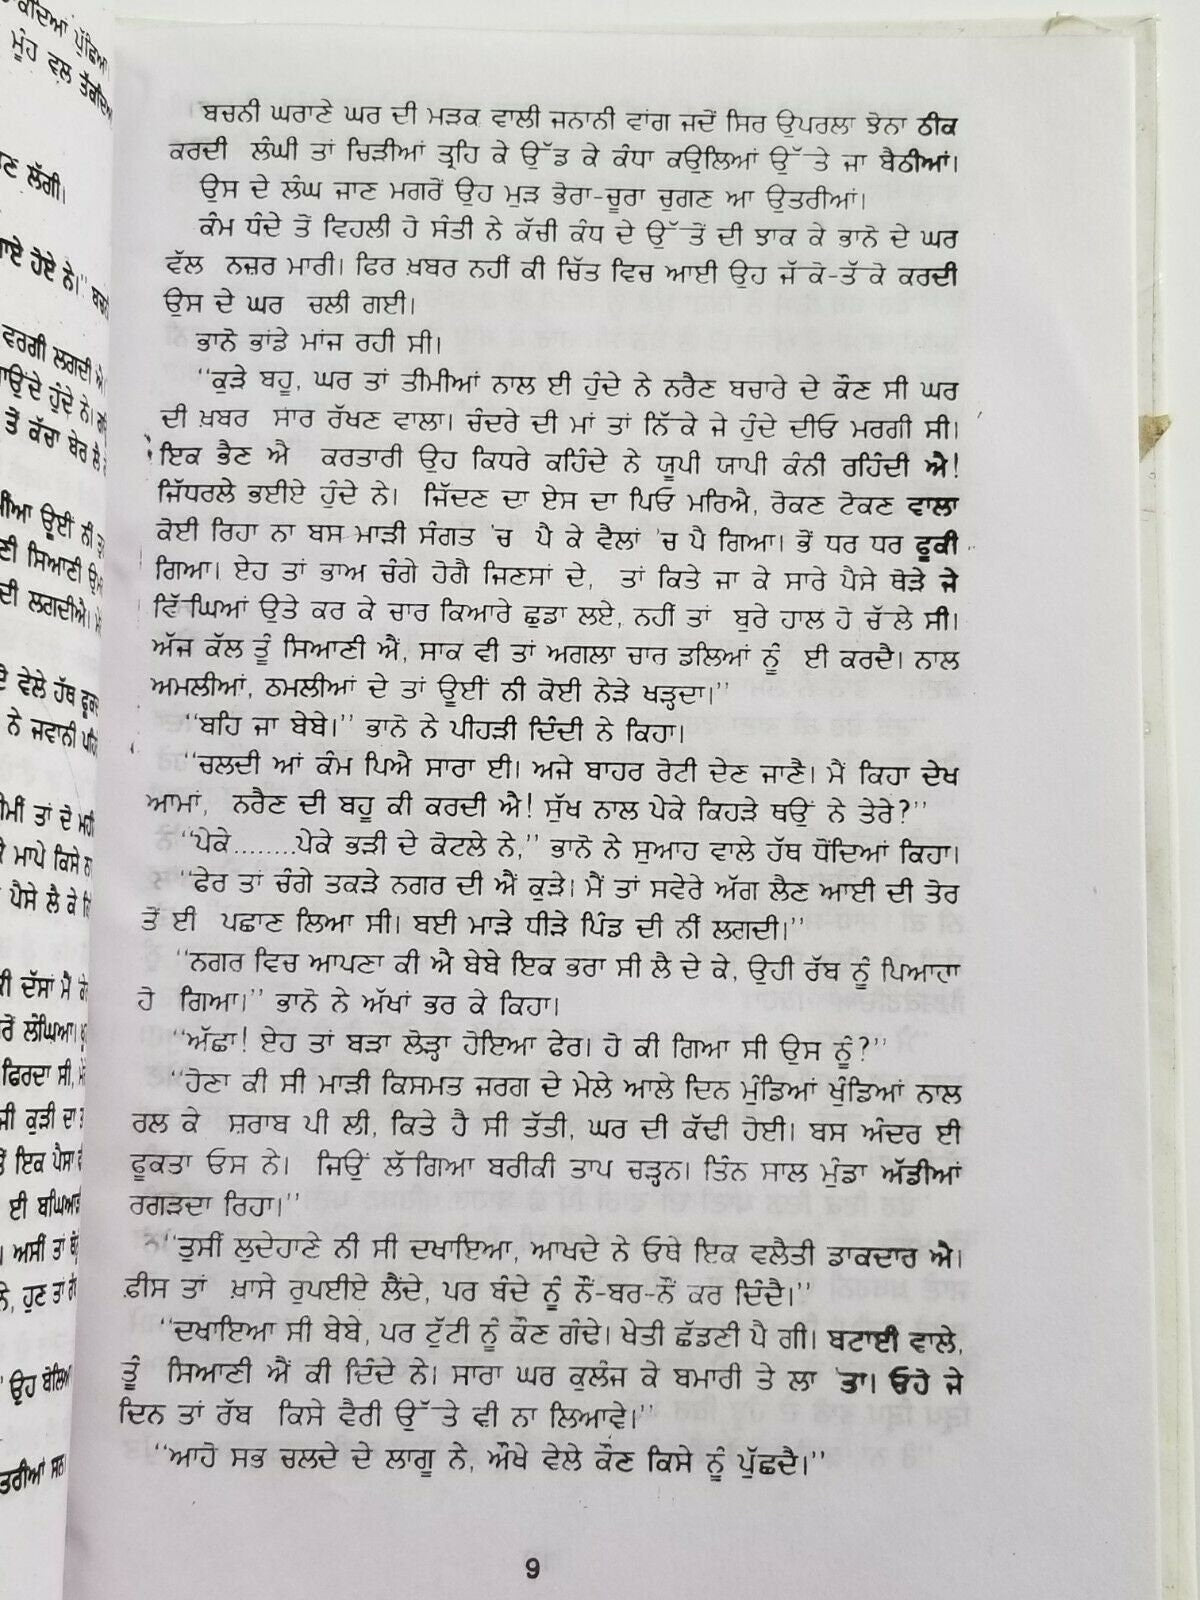 ਬਚਨੀ ਘਰਾਣੇ ਘਰ ਦੀ ਮੜਕ ਵਾਲੀ ਜਨਾਨੀ ਵਾਂਗ ਜਦੋਂ ਸਿਰ ਉਪਰਲਾ ਝੋਨਾ ਠੀਕ
ਕਰਦੀ ਲੰਘੀ ਤਾਂ ਚਿੜੀਆਂ ਤ੍ਰਹਿ ਕੇ ਉੱਡ ਕੇ ਕੰਧਾ ਕਉਲਿਆਂ ਉੱਤੇ ਜਾ ਬੈਠੀਆਂ।
ਉਸ ਦੇ ਲੰਘ ਜਾਣ ਮਗਰੋਂ ਉਹ ਮੁੜ ਭੋਰਾ-ਚੂਰਾ ਚੁਗਣ ਆ ਉਤਰੀਆਂ।
ਕੰਮ ਧੰਦੇ ਤੋਂ ਵਿਹਲੀ ਹੋ ਸੰਤੀ ਨੇ ਕੱਚੀ ਕੰਧ ਦੇ ਉੱਤੋਂ ਦੀ ਝਾਕ ਕੇ ਭਾਨੋ ਦੇ ਘਰ
ਵੱਲ ਨਜ਼ਰ ਮਾਰੀ। ਫਿਰ ਖ਼ਬਰ ਨਹੀਂ ਕੀ ਚਿੱਤ ਵਿਚ ਆਈ ਉਹ ਜੱਕੋ-ਤੱਕੇ ਕਰਦੀ
ਉਸ ਦੇ ਘਰ ਚਲੀ ਗਈ।
ਭਾਨੋ ਭਾਂਡੇ ਮਾਂਜ ਰਹੀ ਸੀ।
''ਕੁੜੇ ਬਹੂ, ਘਰ ਤਾਂ ਤੀਮੀਆਂ ਨਾਲ ਈ ਹੁੰਦੇ ਨੇ ਨਰੈਣ ਬਚਾਰੇ ਦੇ ਕੌਣ ਸੀ ਘਰ
ਦੀ ਖ਼ਬਰ ਸਾਰ ਰੱਖਣ ਵਾਲਾ। ਚੰਦਰੇ ਦੀ ਮਾਂ ਤਾਂ ਨਿੱਕੇ ਜੇ ਹੁੰਦੇ ਦੀਓ ਮਰਗੀ ਸੀ।
ਇਕ ਭੈਣ ਐ ਕਰਤਾਰੀ ਉਹ ਕਿਧਰੇ ਕਹਿੰਦੇ ਨੇ ਯੂਪੀ ਯਾਪੀ ਕੰਨੀ ਰਹਿੰਦੀ ਐ!
ਜਿੱਧਰਲੇ ਭਈਏ ਹੁੰਦੇ ਨੇ। ਜਿੱਦਣ ਦਾ ਏਸ ਦਾ ਪਿਓ ਮਰਿਐ, ਰੋਕਣ ਟੋਕਣ ਵਾਲਾ
ਕੋਈ ਰਿਹਾ ਨਾ ਬਸ ਮਾੜੀ ਸੰਗਤ 'ਚ ਪੈ ਕੇ ਵੈਲਾਂ 'ਚ ਪੈ ਗਿਆ। ਭੋਂ ਧਰ ਧਰ ਫੂਕੀ
ਗਿਆ। ਏਹ ਤਾਂ ਭਾਅ ਚੰਗੇ ਹੋਗੈ ਜਿਣਸਾਂ ਦੇ, ਤਾਂ ਕਿਤੇ ਜਾ ਕੇ ਸਾਰੇ ਪੈਸੇ ਥੋੜੇ ਜੇ
ਵਿੱਘਿਆਂ ਉਤੇ ਕਰ ਕੇ ਚਾਰ ਕਿਆਰੇ ਛੁਡਾ ਲਏ, ਨਹੀਂ ਤਾਂ ਬੁਰੇ ਹਾਲ ਹੋ ਚੱਲੇ ਸੀ।
ਅੱਜ ਕੱਲ ਤੂੰ ਸਿਆਣੀ ਐਂ, ਸਾਕ ਵੀ ਤਾਂ ਅਗਲਾ ਚਾਰ ਡਲਿਆਂ ਨੂੰ ਈ ਕਰਦੈ। ਨਾਲ
ਅਮਲੀਆਂ, ਠਮਲੀਆਂ ਦੇ ਤਾਂ ਊਈਂ ਨੀ ਕੋਈ ਨੇੜੇ ਖੜ੍ਹਦਾ।''
''ਬਹਿ ਜਾ ਬੇਬੇ।'' ਭਾਨੋ ਨੇ ਪੀਹੜੀ ਦਿੰਦੀ ਨੇ ਕਿਹਾ।
''ਚਲਦੀ ਆਂ ਕੰਮ ਪਿਐ ਸਾਰਾ ਈ। ਅਜੇ ਬਾਹਰ ਰੋਟੀ ਦੇਣ ਜਾਣੈ। ਮੈਂ ਕਿਹਾ ਦੇਖ
ਆਮਾਂ, ਨਰੈਣ ਦੀ ਬਹੂ ਕੀ ਕਰਦੀ ਐ! ਸੁੱਖ ਨਾਲ ਪੇਕੇ ਕਿਹੜੇ ਥਉਂ ਨੇ ਤੇਰੇ?''
''ਪੇਕੇ........ਪੇਕੇ ਭੜੀ ਦੇ ਕੋਟਲੇ ਨੇ,'' ਭਾਨੋ ਨੇ ਸੁਆਹ ਵਾਲੇ ਹੱਥ ਧੋਂਦਿਆਂ ਕਿਹਾ।
''ਫੇਰ ਤਾਂ ਚੰਗੇ ਤਕੜੇ ਨਗਰ ਦੀ ਐਂ ਕੁੜੇ। ਮੈਂ ਤਾਂ ਸਵੇਰੇ ਅੱਗ ਲੈਣ ਆਈ ਦੀ ਤੋਰ
ਤੋਂ ਈ ਪਛਾਣ ਲਿਆ ਸੀ। ਬਈ ਮਾੜੇ ਧੀੜੇ ਪਿੰਡ ਦੀ ਨੀਂ ਲਗਦੀ।''
''ਨਗਰ ਵਿਚ ਆਪਣਾ ਕੀ ਐ ਬੇਬੇ ਇਕ ਭਰਾ ਸੀ ਲੈ ਦੇ ਕੇ, ਉਹੀ ਰੱਬ ਨੂੰ ਪਿਆਰਾ
ਹੋ ਗਿਆ।'' ਭਾਨੋ ਨੇ ਅੱਖਾਂ ਭਰ ਕੇ ਕਿਹਾ।
''ਅੱਛਾ! ਏਹ ਤਾਂ ਬੜਾ ਲੋੜ੍ਹਾ ਹੋਇਆ ਫੇਰ। ਹੋ ਕੀ ਗਿਆ ਸੀ ਉਸ ਨੂੰ?''
''ਹੋਣਾ ਕੀ ਸੀ ਮਾੜੀ ਕਿਸਮਤ ਜਰਗ ਦੇ ਮੇਲੇ ਆਲੇ ਦਿਨ ਮੁੰਡਿਆਂ ਖੁੰਡਿਆਂ ਨਾਲ
ਰਲ ਕੇ ਸ਼ਰਾਬ ਪੀ ਲੀ, ਕਿਤੇ ਹੈ ਸੀ ਤੱਤੀ, ਘਰ ਦੀ ਕੱਢੀ ਹੋਈ। ਬਸ ਅੰਦਰ ਈ
ਫੂਕਤਾ ਓਸ ਨੇ। ਜਿਉਂ ਲੱਗਿਆ ਬਰੀਕੀ ਤਾਪ ਚੜ੍ਹਨ। ਤਿੰਨ ਸਾਲ ਮੁੰਡਾ ਅੱਡੀਆਂ
ਰਗੜਦਾ ਰਿਹਾ।''
''ਤੁਸੀਂ ਲੁਦੇਹਾਣੇ ਨੀ ਸੀ ਦਖਾਇਆ, ਆਖਦੇ ਨੇ ਓਥੇ ਇਕ ਵਲੈਤੀ ਡਾਕਦਾਰ ਐ।
ਫ਼ੀਸ ਤਾਂ ਖ਼ਾਸੇ ਰੁਪਈਏ ਲੈਂਦੇ, ਪਰ ਬੰਦੇ ਨੂੰ ਨੌਂ-ਬਰ-ਨੌਂ ਕਰ ਦਿੰਦੈ।''
''ਦਖਾਇਆ ਸੀ ਬੇਬੇ, ਪਰ ਟੁੱਟੀ ਨੂੰ ਕੌਣ ਗੰਢੇ। ਖੇਤੀ ਛੱਡਣੀ ਪੈ ਗੀ। ਬਟਾਈ ਵਾਲੇ,
ਤੂੰ ਸਿਆਣੀ ਐਂ ਕੀ ਦਿੰਦੇ ਨੇ। ਸਾਰਾ ਘਰ ਕੁਲੰਜ ਕੇ ਬਮਾਰੀ ਤੇ ਲਾ 'ਤਾ। ਓਹੋ ਜੇ
ਦਿਨ ਤਾਂ ਰੱਬ ਕਿਸੇ ਵੈਰੀ ਉੱਤੇ ਵੀ ਨਾ ਲਿਆਵੇ।''
''ਆਹੋ ਸਭ ਚਲਦੇ ਦੇ ਲਾਗੂ ਨੇ, ਔਖੇ ਵੇਲੇ ਕੌਣ ਕਿਸੇ ਨੂੰ ਪੁੱਛਦੈ।''
9